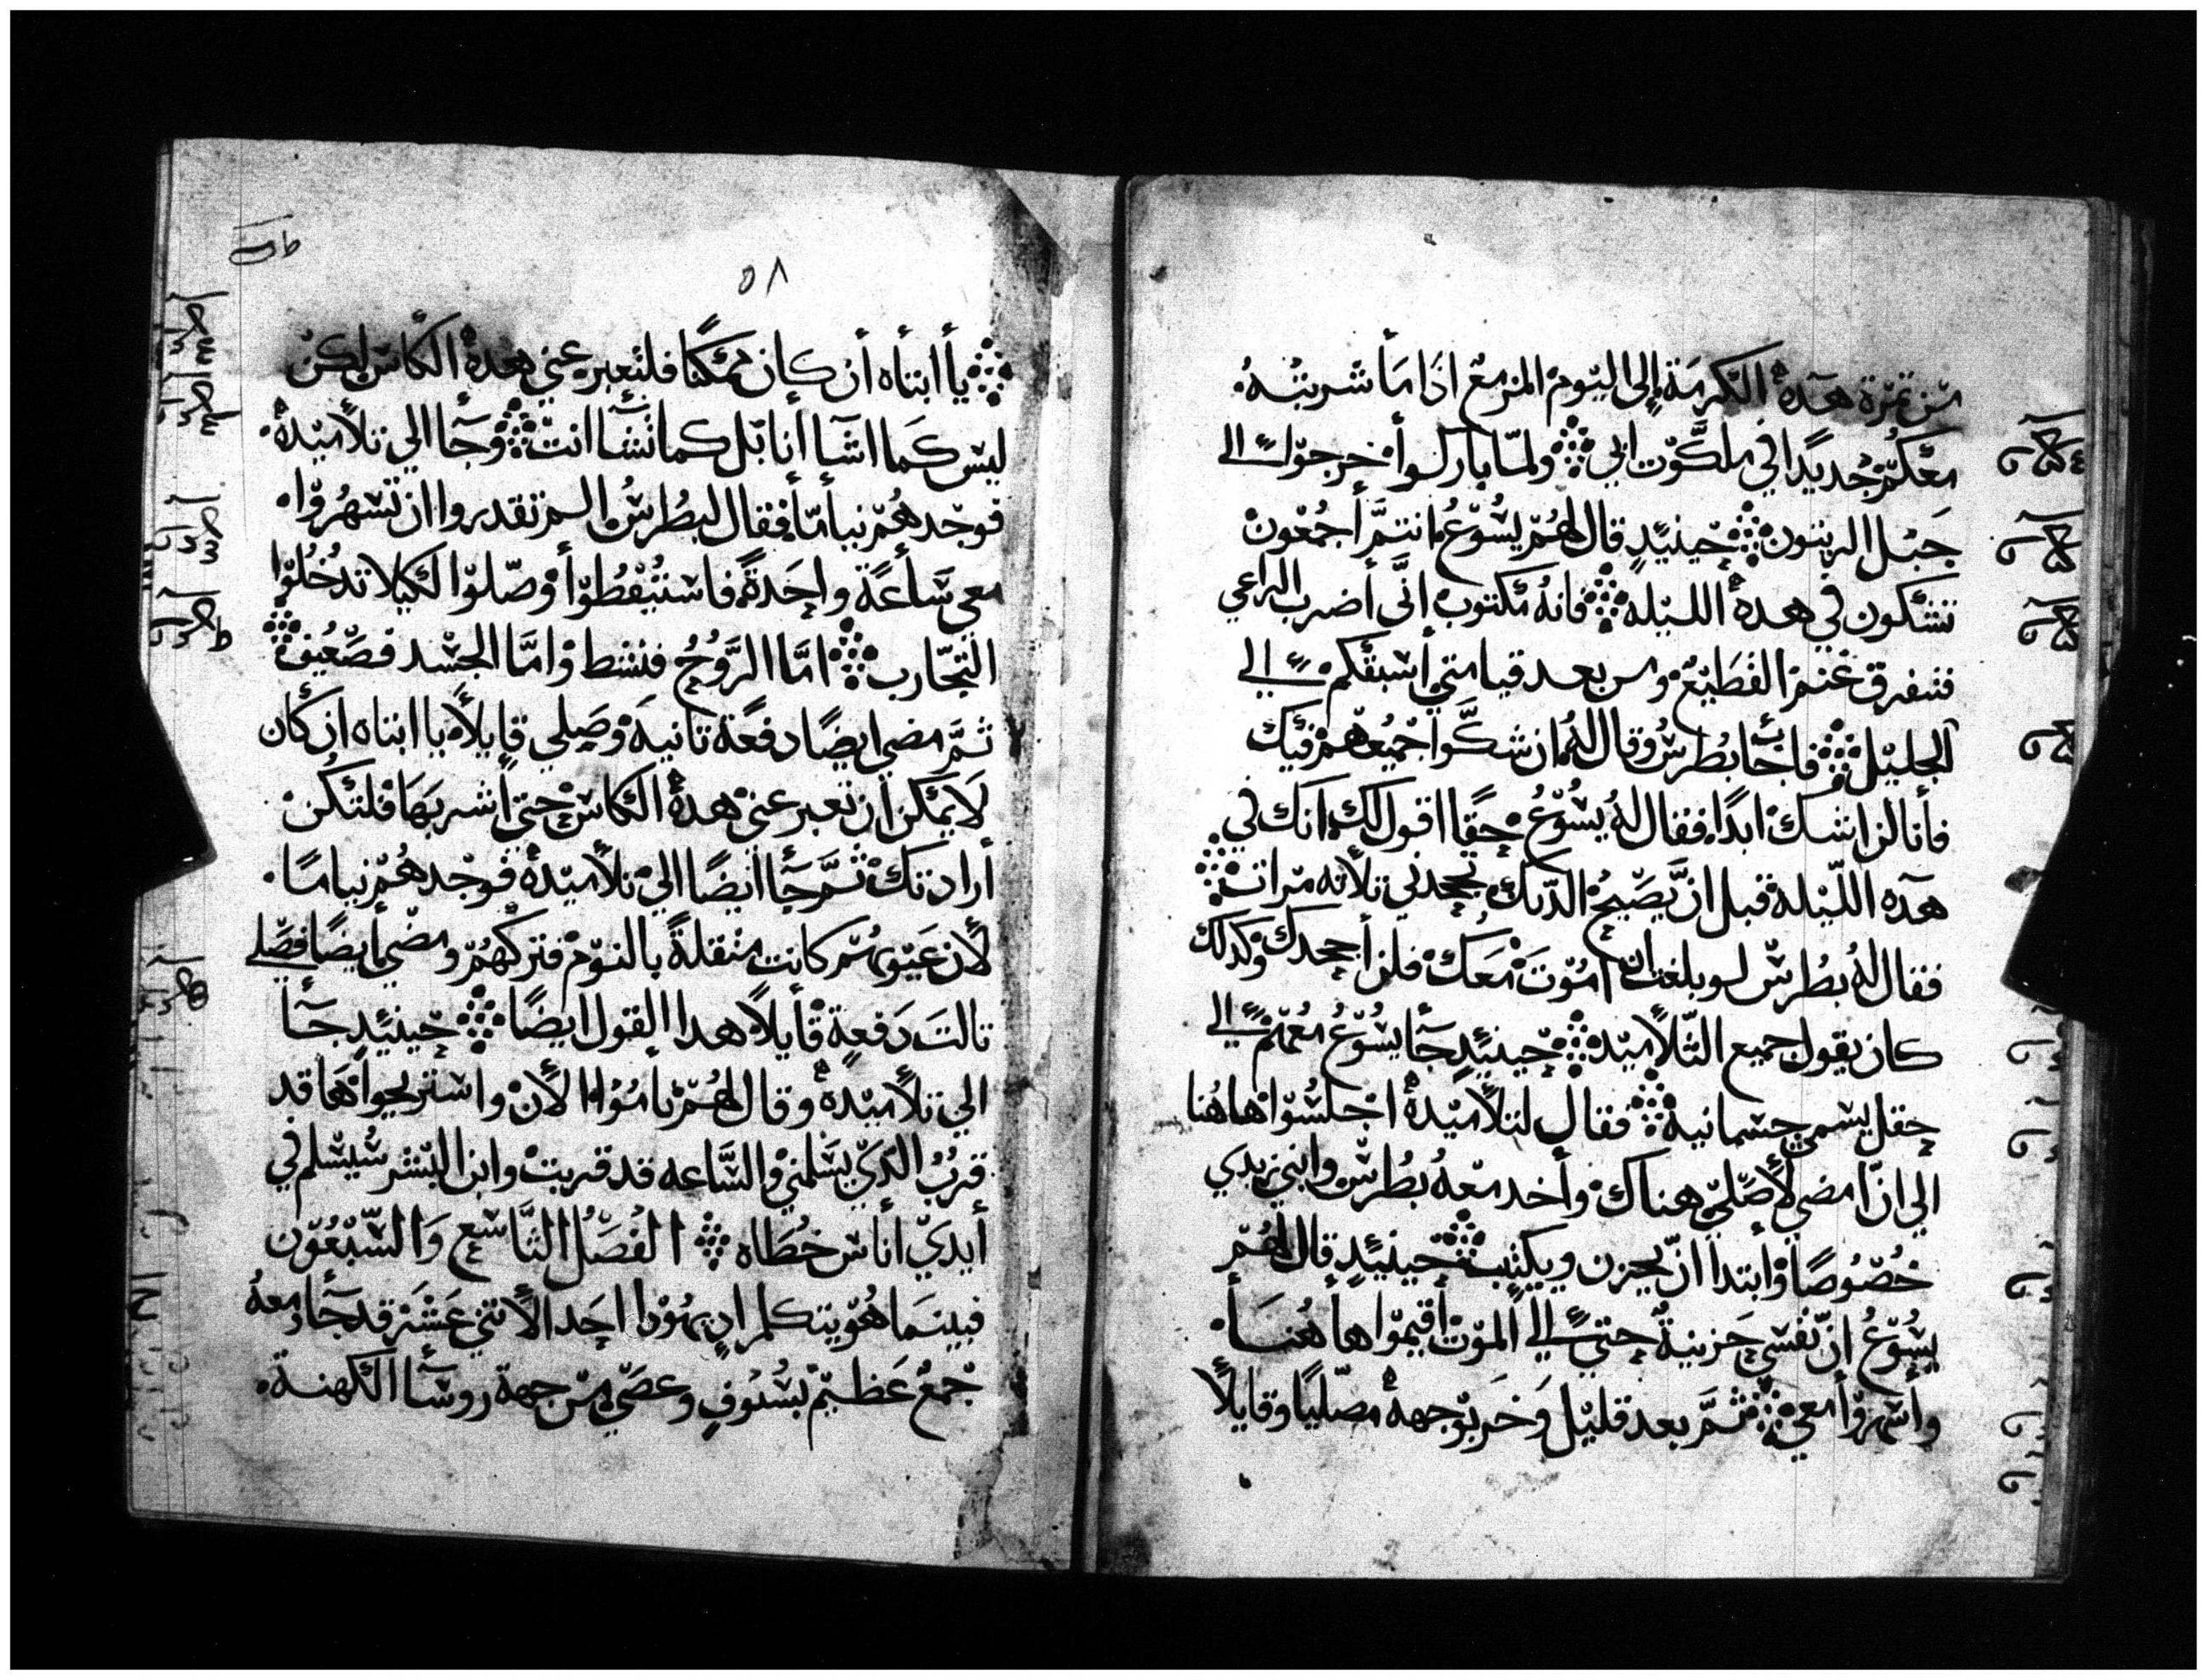 من تمرة هده الكرمة إلى اليوم المزمع اذا ما شربته
معكم جديدا في ملكوت ابي ولما باركوا خرجوا الى
جبل الزيتون حينيد قال لهم يسوع انتم أجمعون
تشكون في هده الليله فانه مكتوب انى أضرب الراعي
فتفرق غنم القطيع ومن بعد قيامتي أسبقكم الى
الجليل فاجاب بطرس وقال له ان شكوا جميعهم فيك
فأنا لن اشك ابدا فقال له يسوع حقا اقول لك انك في
هده الليلة قبل ان يصيح الديك تجحدني تلاته مرات
فقال له بطرس لو بلغت ان اموت معك فلن أجحدك وكدلك
كان يقول جميع التلاميد حينيد جا يسوع معهم الى
حقل يسمى جسمانية فقال لتلاميده اجلسوا هاهنا
الي ان امضي لأصلي هناك وأخد معه بطرس وابني زبدي
خصوصا وابتدا ان يحزن ويكتب حينيد قال لهم
يسوع ان نفسي حزينة حتى الى الموت أقيموا هاهنا
وأسهروا معي ثم بعد قليل وخر بوجهه مصليا وقايلا
٥٨
يا أبتاه أن كان ممكنا فلتعبر عني هده الكاس لكن
ليس كما اشا أنا بل كما تشا انت وجا الى تلاميده
فوجدهم نياما فقال لبطرس السم تقدروا ان تسهروا
معي ساعة واحدة فاستيقظوا وصلوا لكيلا تدخلوا
التجارب اما الروح فنشط واما الجسد فضعيف
ثم مضي ايضا دفعة تانية وصلي قايلا يا ابتاه ان كان
لا يمكن ان تعبر عني هده الكاس حتي أشربها فلتكن
أرادتك ثم جا ايضا الي تلاميده فوجدهم نياما
لأن عيونهم كانت متقلة بالنوم فتركهم ومضي أيضا فصلى
تالت دفعة قايلا هدا القول ايضا حينيد جا
الي تلاميده وقال لهم ناموا الأن واستريحوا ها قد
قرب الدي يسلمني والساعه قد قربت وابن البشر سيسلم في
أيدي أناس خطاه الفصل التاسع والسبعون
فبينما هو يتكلم اد يهودا احد الأتني عشر قد جا ومعه
جمع عظيم بسيوف وعصي من جهة روسا الكهنة